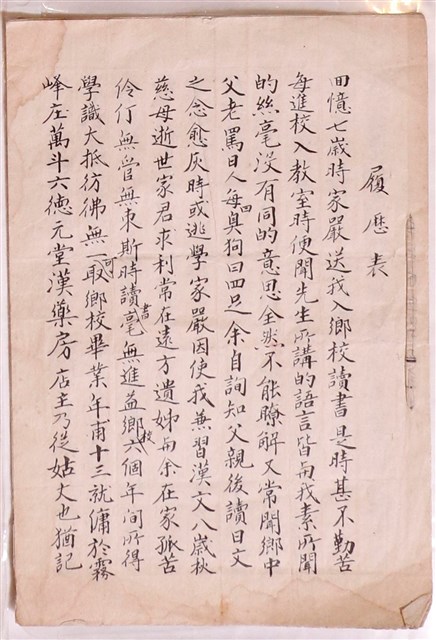 履歷表
回憶七歲時家嚴送我入鄉校讀書是時甚不勤苦
每進校入教室時便聞先生所講的語言皆與我素所聞
的絲毫沒有同的意思全然不能瞭解又常聞鄉中
父老罵日人每臭狗曰四足余自詢知父親後讀日文
之念愈灰時或逃學家嚴因使我兼習漢文八歲秋
慈母逝世家君求利常在遠方遺姊與余在家孤苦
伶仃無管無束斯時讀書毫無進益鄉校六個年間所得
學識大抵彷彿無一可取鄉校畢業年甫十三就傭於霧
峰庄萬斗六德元堂漢藥房店主乃從姑丈也猶記